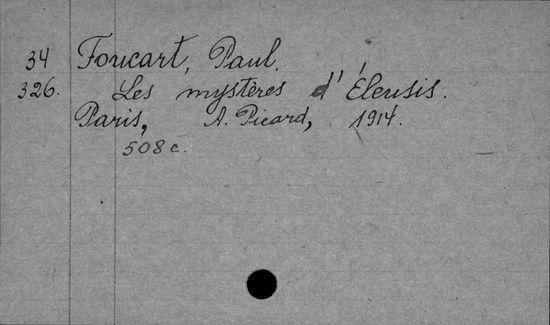 34 Foucart, Paul.
326. Les mystères d'Éleusis.
Paris, A. Picard, 1914.
508 c.